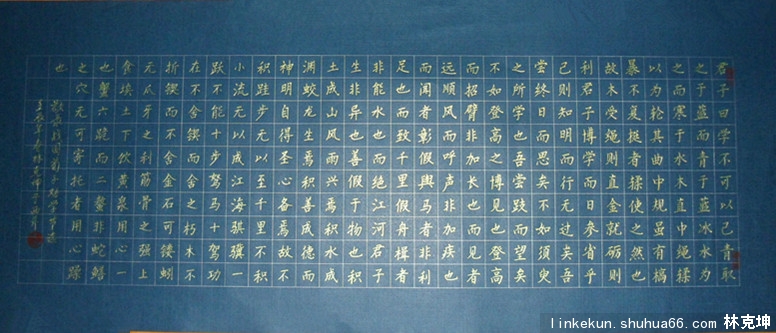 君子曰学不可以已青取
之于蓝而青于蓝冰水为
之而寒于水木直中绳𫐓
以为轮其曲中规虽有槁
暴不复挺者𫐓使之然也
故木受绳则直金就砺则
利君子博学而日参省乎
己则知明而行无过矣吾
尝终日而思矣不如须臾
之所学也吾尝跂而望矣
不如登高之博见也登高
而招臂非加长也而见者
远顺风而呼声非加疾也
而闻者彰假舆马者非利
足也而致千里假舟楫者
非能水也而绝江河君子
生非异也善假于物也积
土成山风雨兴焉积水成
渊蛟龙生焉积善成德而
神明自得圣心备焉故不
积跬步无以至千里不积
小流无以成江海骐骥一
跃不能十步驽马十驾功
在不舍锲而舍之朽木不
折锲而不舍金石可镂蚓
无爪牙之利筋骨之强上
食埃土下饮黄泉用心一
也蟹六跪而二螯非蛇鳝
之穴无可寄托者用心躁
也
linkekun.shuhua66.com 林克坤